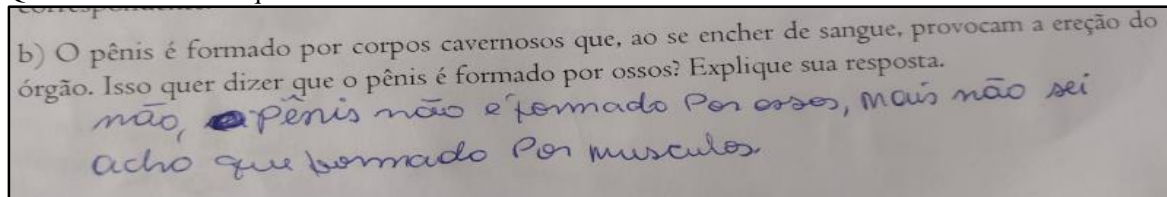 b) O pênis é formado por corpos cavernosos que, ao se encher de sangue, provocam a ereção do
órgão. Isso quer dizer que o pênis é formado por ossos? Explique sua resposta.
não, o pênis não é formado por ossos, mais não sei
acho que formado por musculos.